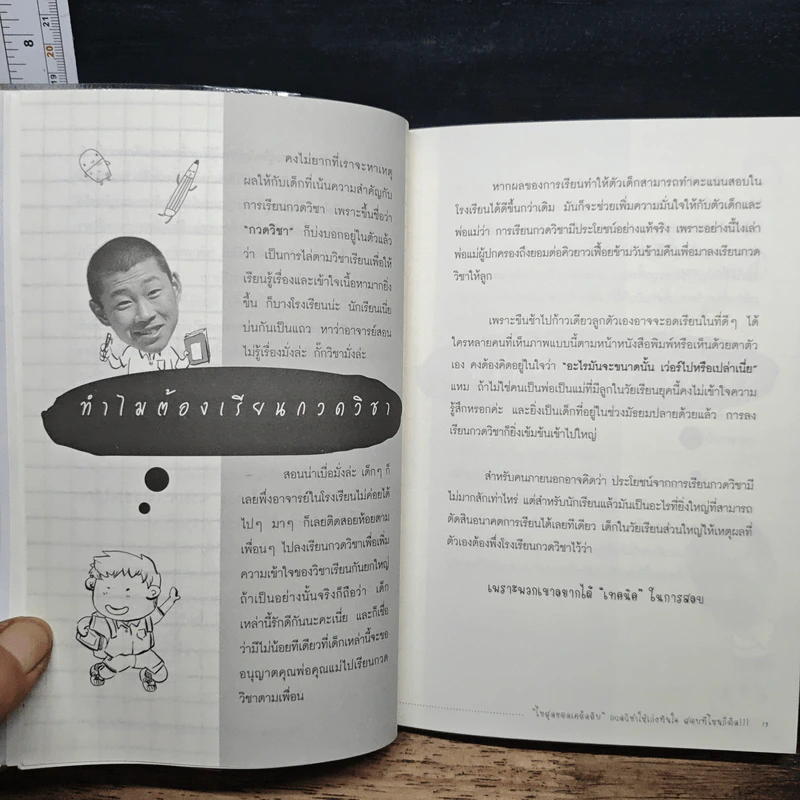 8
21
20
19
คงไม่ยากที่เราจะหาเหตุ
ผลให้กับเด็กที่เน้นความสำคัญกับ
การเรียนกวดวิชา เพราะขึ้นชื่อว่า
"กวดวิชา" ก็บ่งบอกอยู่ในตัวแล้ว
ว่า เป็นการไล่ตามวิชาเรียนเพื่อให้
เรียนรู้เรื่องและเข้าใจเนื้อหามากยิ่ง
ขึ้น ก็บางโรงเรียนน่ะ นักเรียนเนี่ย
บ่นกันเป็นแถว หาว่าอาจารย์สอน
ไม่รู้เรื่องมั่งล่ะ กั๊กวิชามั่งล่ะ
ทำไมต้องเรียนกวดวิชา
สอนน่าเบื่อมั่งล่ะ เด็กๆ ก็
เลยพึ่งอาจารย์ในโรงเรียนไม่ค่อยได้
ไปๆ มาๆ ก็เลยติดสอยห้อยตาม
เพื่อนๆ ไปลงเรียนกวดวิชาเพื่อเพิ่ม
ความเข้าใจของวิชาเรียนกันยกใหญ่
ถ้าเป็นอย่างนั้นจริงก็ถือว่า เด็ก
เหล่านี้รักดีกันนะคะเนี่ย และก็เชื่อ
ว่ามีไม่น้อยทีเดียวที่เด็กเหล่านี้จะขอ
อนุญาตคุณพ่อคุณแม่ไปเรียนกวด
วิชาตามเพื่อน
หากผลของการเรียนทำให้ตัวเด็กสามารถทำคะแนนสอบใน
โรงเรียนได้ดีขึ้นกว่าเดิม มันก็จะช่วยเพิ่มความมั่นใจให้กับตัวเด็กและ
พ่อแม่ว่า การเรียนกวดวิชามีประโยชน์อย่างแท้จริง เพราะอย่างนี้ไงเล่า
พ่อแม่ผู้ปกครองถึงยอมต่อคิวยาวเฟื้อยข้ามวันข้ามคืนเพื่อมาลงเรียนกวด
วิชาให้ลูก
เพราะขืนช้าไปก้าวเดียวลูกตัวเองอาจจะอดเรียนในที่ดีๆ ได้
ใครหลายคนที่เห็นภาพแบบนี้ตามหน้าหนังสือพิมพ์หรือเห็นด้วยตาตัว
เอง คงต้องคิดอยู่ในใจว่า "อะไรมันจะขนาดนั้น เว่อร์ไปหรือเปล่าเนี่ย"
แหม ถ้าไม่ใช่คนเป็นพ่อเป็นแม่ที่มีลูกในวัยเรียนยุคนี้คงไม่เข้าใจความ
รู้สึกหรอกค่ะ และยิ่งเป็นเด็กที่อยู่ในช่วงมัธยมปลายด้วยแล้ว การลง
เรียนกวดวิชาก็ยิ่งเข้มข้นเข้าไปใหญ่
สำหรับคนภายนอกอาจคิดว่า ประโยชน์จากการเรียนกวดวิชามี
ไม่มากสักเท่าไหร่ แต่สำหรับนักเรียนแล้วมันเป็นอะไรที่ยิ่งใหญ่ที่สามารถ
ตัดสินอนาคตการเรียนได้เลยทีเดียว เด็กในวัยเรียนส่วนใหญ่ให้เหตุผลที่
ตัวเองต้องพึ่งโรงเรียนกวดวิชาไว้ว่า
เพราะพวกเขาอยากได้ "เทคนิค" ในการสอบ
13